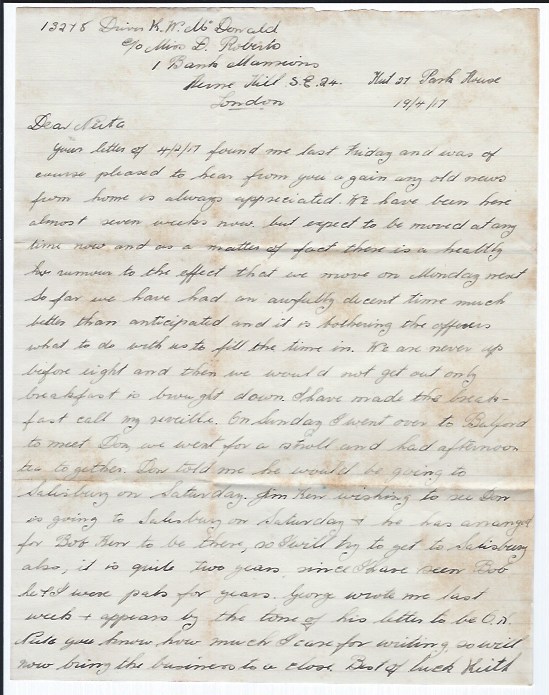 13278 Driver K. W. McDonald
c/o Miss D. Roberts
1 Bank Mansions
Herne Hill, S.E. 24. Hut 27 Park House
London 19/4/17
Dear Neta
Your letter of 4/2/17 found me last Friday and was of
course pleased to hear from you again any old news
from home is always appreciated. We have been here
almost seven weeks now, but expect to be moved at any
time now and as a matter of fact there is a healthy
rumour to the effect that we move on Monday next
So far we have had an awfully decent time much
better than anticipated and it is bothering the officers
what to do with us to fill the time in. We are never up
before eight and then we would not get out only
breakfast is brought down. I have made the break-
fast call my reveille. On Sunday I went over to Bulford
to meet Don, we went for a stroll and had afternoon
tea together. Don told me he would be going to
Salisbury on Saturday. Jim Kerr wishing to see Don
is going to Salisbury on Saturday + he has arranged
for Bob Kerr to be there, so I will try to get to Salisbury
also, it is quite two years since I have seen Bob
he + I were pals for years. George wrote me last
week + appears by the tone of his letter to be O.K.
Neta you know how much I care for writing so will
now bring the business to a close Best of luck Keith